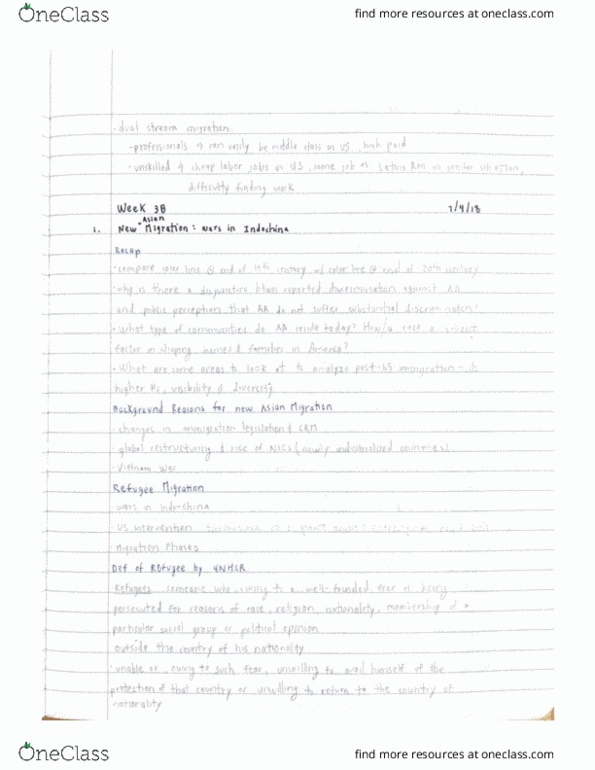 OneClass
find more resources at oneclass.com
- dual stream migration
- professionals → can easily be middle class in US, high paid
- unskilled → cheap labor jobs in US, same job as Latinx Am in similar situation,
difficulty finding work
Week 3B 7/4/18
1. New Asian Migration: Wars in Indochina
Recap
- compare color line @ end of 19th century w/ color line @ end of 20th century
- why is there a disjuncture btwn reported discrimination against AA
and public perception that AA do not suffer substantial discrimination?
- What type of communities do AA reside today? How is race a
factor in shaping homes & families in America?
- What are some areas to look at to analyze post-65 immigration - it's
higher #s, visibility & diversity
Background Reasons for new Asian Migration
- changes in immigration legislation & CRM
- global restructuring & rise of NICs (newly industrialized countries)
- Vietnam War
Refugee Migration
- wars in Indo-China
- US intervention
- Migration Phases
Def of Refugee by UNHCR
Refugees: someone who, owing to a well-founded fear of being
persecuted for reasons of race, religion, nationality, membership of a
particular social group or political opinion
outside the country of his nationality
- unable or, owing to such fear, unwilling to avail himself of the
protection of that country or unwilling to return to the country of
nationality
OneClass
find more resources at oneclass.com